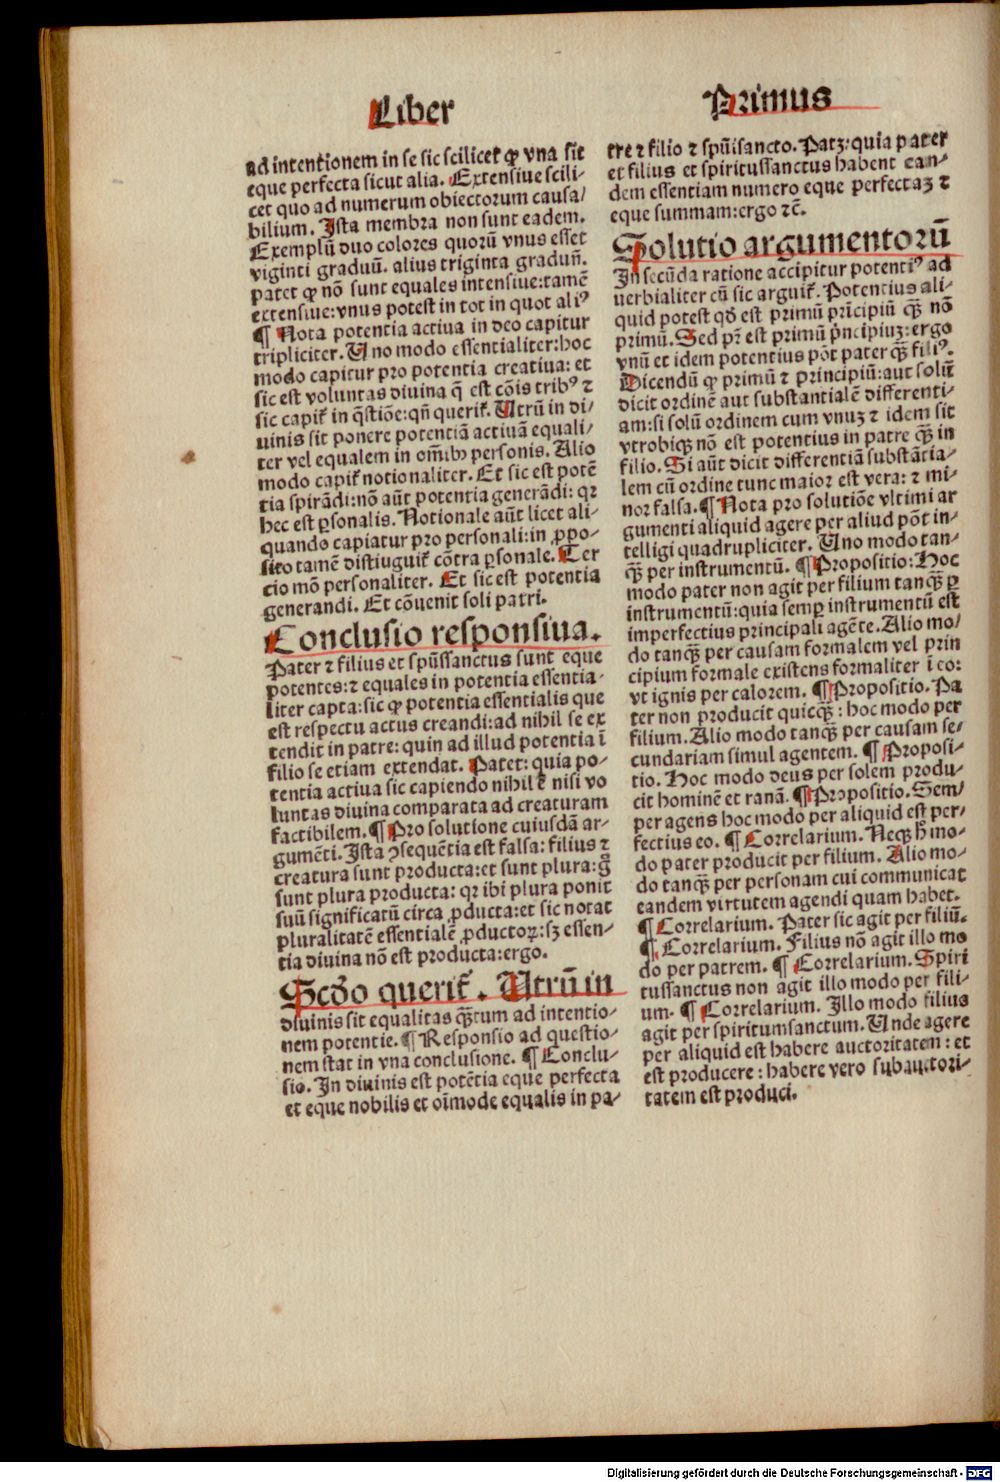 Liber
Primus
ad intentionem in se sic scilicet ꝙ vna sit
eque perfecta sicut alia. Extensiue scili⸗
cet quo ad numerum obiectorum causa⸗
bilium. Ista membra non sunt eadem.
Exemplū duo colores quorū vnus esset
viginti graduū. alius triginta graduū.
patet ꝙ nō sunt equales intensiue: tamē
extensiue: vnus potest in tot in quot aliꝰ
¶ Nota potentia actiua in deo capitur
tripliciter. Uno modo essentialiter: hoc
modo capitur pro potentia creatiua: et
sic est voluntas diuina q̄ est cōis tribꝰ ⁊
sic capit᷑ in q̄stiōe: qn̄ querit᷑. Utrū in di⸗
uinis sit ponere potentiā actiuā equali⸗
ter vel equalem in om̄ibꝫ personis. Alio
modo capit᷑ notionaliter. Et sic est potē
tia spirādi: nō aūt potentia generādi: qꝛ
hec est ꝑsonalis. Notionale aūt licet ali⸗
quando capiatur pro personali: in ꝓpo⸗
sito tamē distiuguit᷑ cōtra ꝑsonale. Ter
tio mō personaliter. Et sic est potentia
generandi. Et cōuenit soli patri.
Conclusio responsiua.
Pater ⁊ filius et spūssanctus sunt eque
potentes: ⁊ equales in potentia essentia⸗
liter capta: sic ꝙ potentia essentialis que
est respectu actus creandi: ad nihil se ex
tendit in patre: quin ad illud potentia ī
filio se etiam extendat. Patet: quia po⸗
tentia actiua sic capiendo nihil ē nisi vo
luntas diuina comparata ad creaturam
factibilem. ¶ Pro solutione cuiusdā ar⸗
gumēti. Ista ꝯsequētia est falsa: filius ⁊
creatura sunt producta: et sunt plura: g̊
sunt plura producta: qꝛ ibi plura ponit
suū significatū circa ꝓducta: et sic notat
pluralitatē essentialē ꝓductoꝝ: sꝫ essen⸗
tia diuina nō est producta: ergo.
Scd̄o querit᷑. Utrū in
diuinis sit equalitas q̄ꝫtum ad intentio⸗
nem potentie. ¶ Responsio ad questio⸗
nem stat in vna conclusione. ¶ Conclu⸗
sio. In diuinis est potētia eque perfecta
et eque nobilis et oīmode equalis in pa⸗
tre ⁊ filio ⁊ spūisancto. Patꝫ: quia pater
et filius et spiritussanctus habent ean⸗
dem essentiam numero eque perfectaꝫ ⁊
eque summam: ergo ⁊c̄.
Solutio argumentorū
In secūda ratione accipitur potentiꝰ ad
uerbialiter cū sic arguit᷑. Potentius ali⸗
quid potest qd̄ est primū prīcipiū q̄ꝫ nō
primū. Sed pr̄ est primū prīncipiuꝫ: ergo
vnū et idem potentius pōt pater q̄ꝫ filiꝰ.
Dicendū ꝙ primū ⁊ principiū: aut solū
dicit ordinē aut substantialē differenti⸗
am: si solū ordinem cum vnuꝫ ⁊ idem sit
vtrobiqꝫ nō est potentius in patre q̄ꝫ in
filio. Si aūt dicit differentiā substātia⸗
lem cū ordine tunc maior est vera: ⁊ mi⸗
nor falsa. ¶ Nota pro solutiōe vltimi ar
gumenti aliquid agere per aliud pōt in⸗
telligi quadrupliciter. Uno modo tan⸗
q̄ꝫ per instrumentū. ¶ Propositio: Hoc
modo pater non agit per filium tanq̄ꝫ ꝑ
instrumentū: quia semꝑ instrumentū est
imperfectius principali agēte. Alio mo⸗
do tanq̄ꝫ per causam formalem vel prin
cipium formale existens formaliter ī eo:
vt ignis per calorem. ¶ Propositio. Pa
ter non producit quicq̄ꝫ: hoc modo per
filium. Alio modo tanq̄ꝫ per causam se⸗
cundariam simul agentem. ¶ Proposi⸗
tio. Hoc modo deus per solem produ⸗
cit hominē et ranā. ¶ Propositio. Sem⸗
per agens hoc modo per aliquid est per⸗
fectius eo. ¶ Correlarium. Neqꝫ h̄ mo⸗
do pater producit per filium. Alio mo⸗
do tanq̄ꝫ per personam cui communicat
eandem virtutem agendi quam habet.
¶ Correlarium. Pater sic agit per filiū.
¶ Correlarium. Filius nō agit illo mo
do per patrem. ¶ Correlarium. Spiri
tussanctus non agit illo modo per fili⸗
um. ¶ Correlarium. Illo modo filius
agit per spiritumsanctum. Unde agere
per aliquid est habere auctoritatem: et
est producere: habere vero subauctori⸗
tatem est produci.
Digitalisierung gefördert durch die Deutsche Forschungsgemeinschaft - DFG